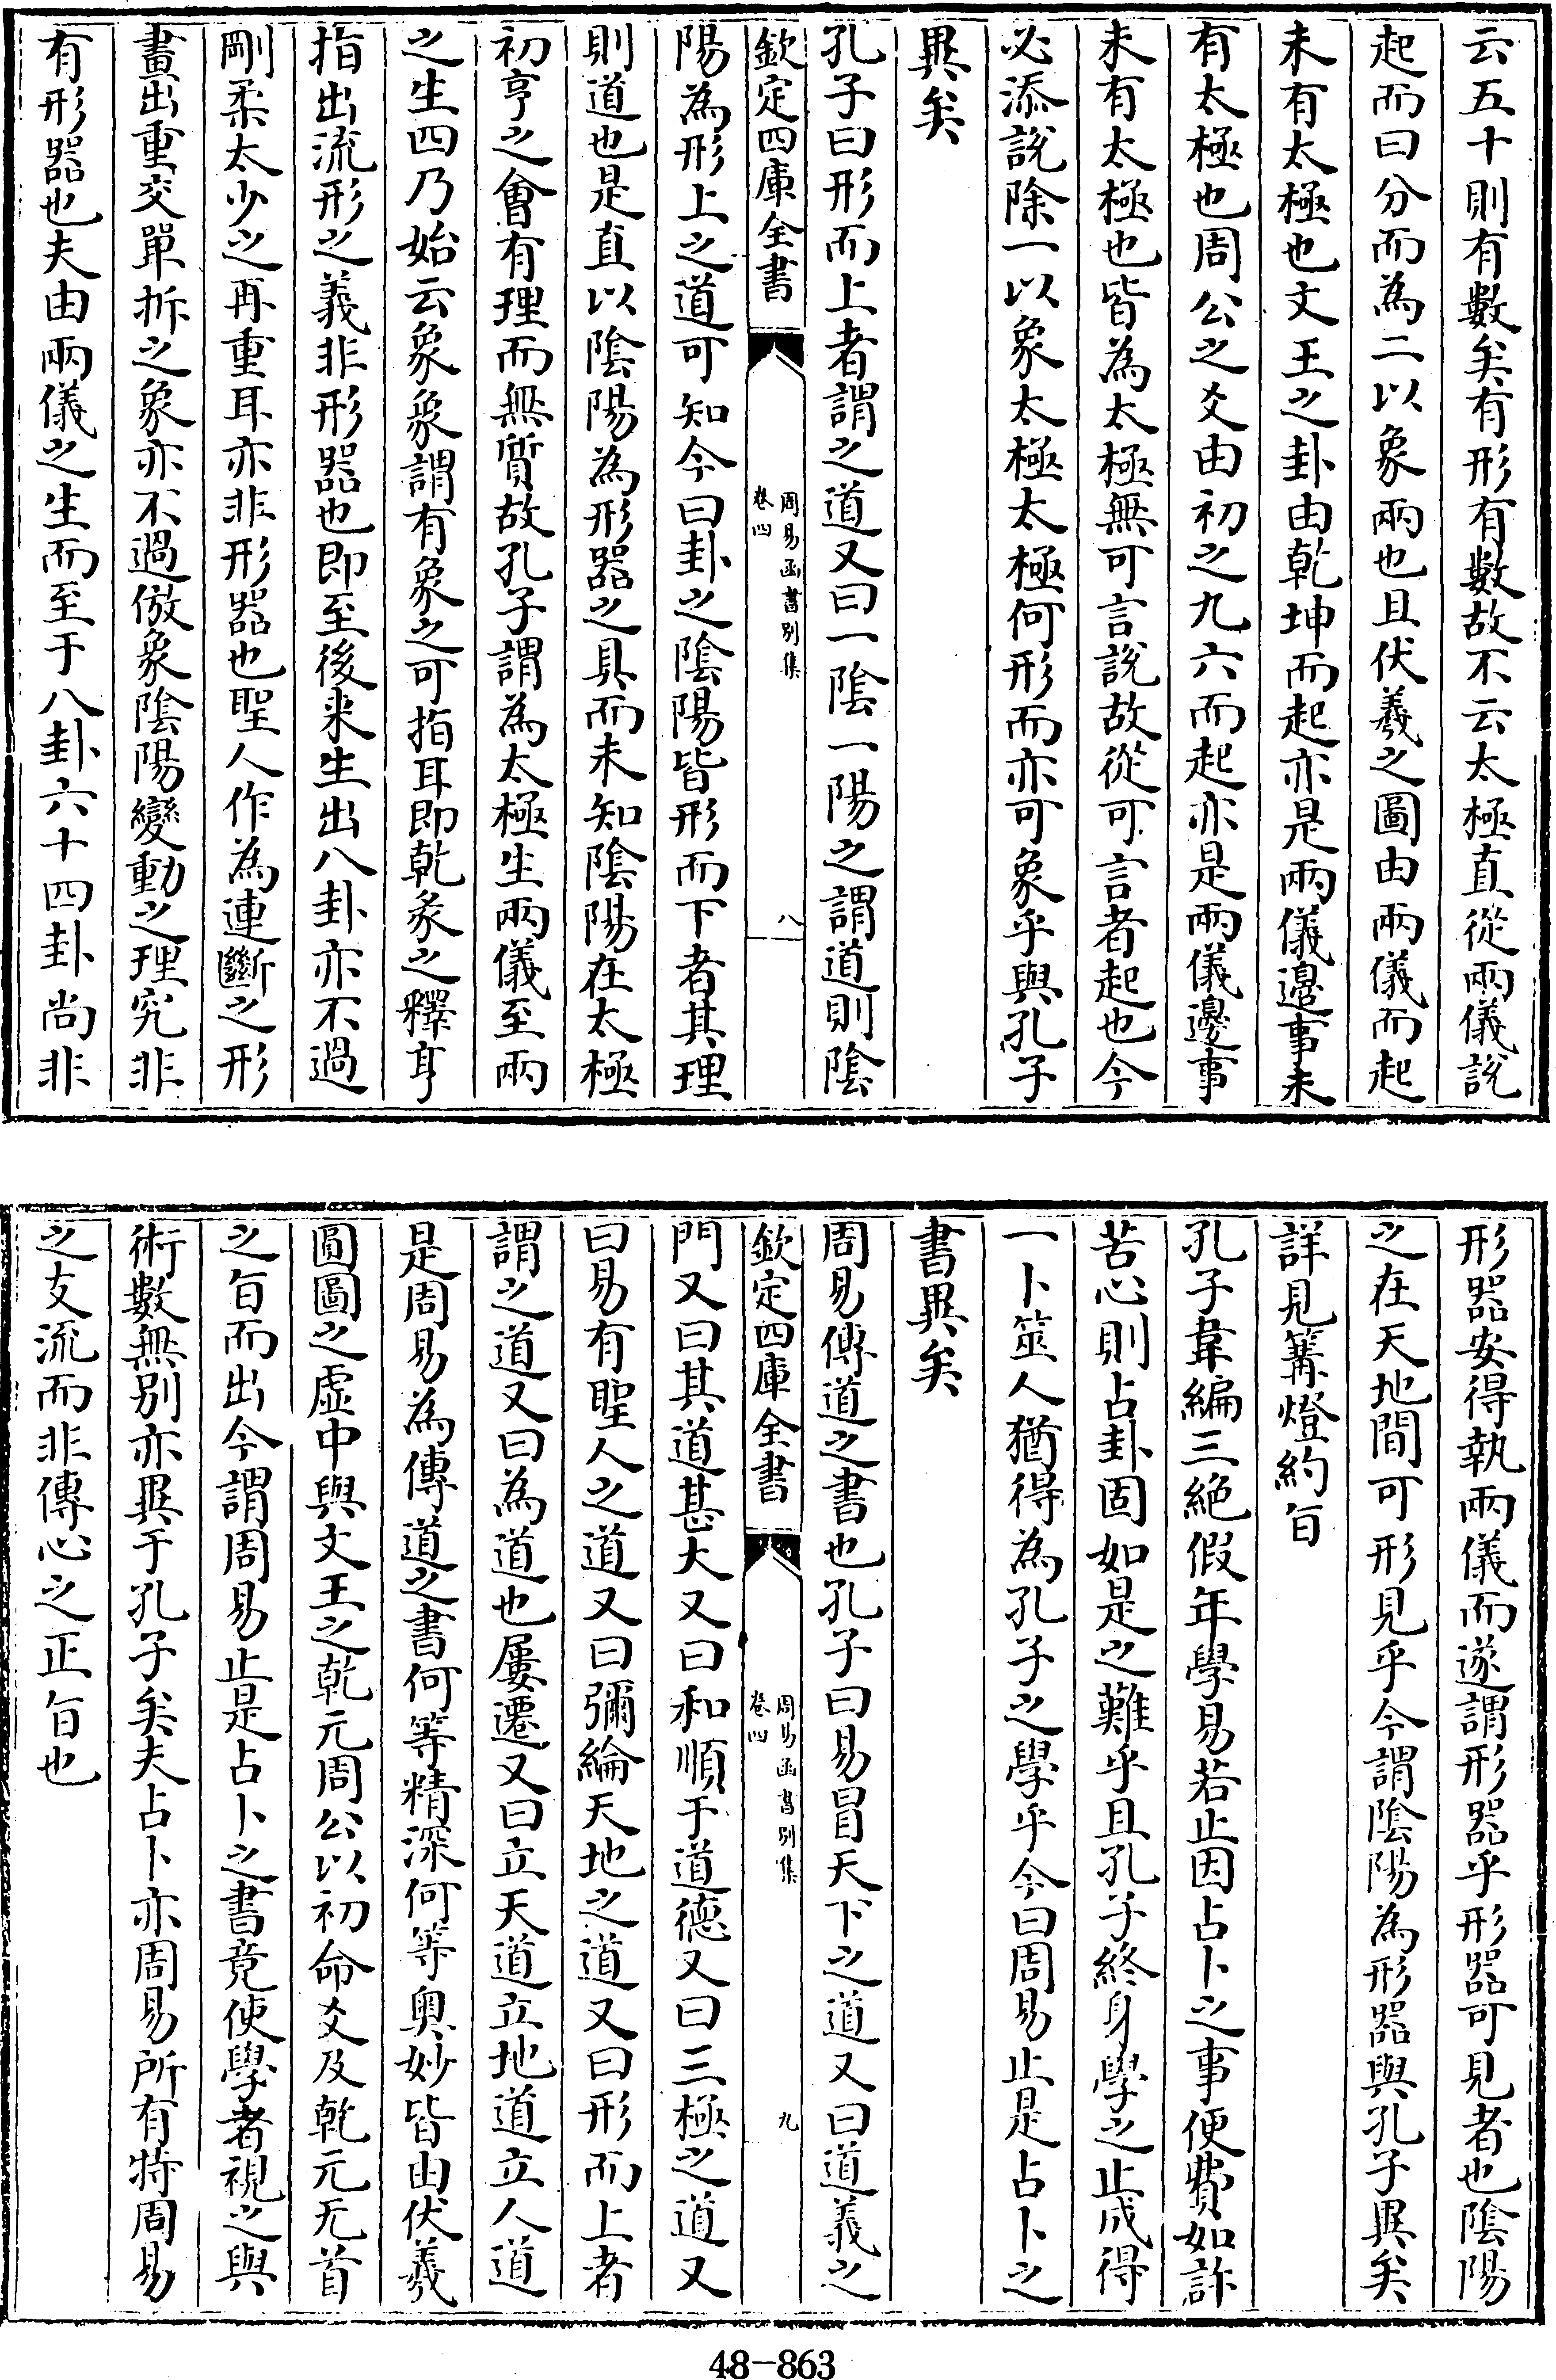 云五十則有數矣有形有數故不云太極直從兩儀說
起而曰分而為二以象兩也且伏羲之圖由兩儀而起
未有太極也文王之卦由乾坤而起亦是兩儀邊事未
有太極也周公之爻由初之九六而起亦是兩儀邊事
未有太極也皆為太極無可言說故從可言者起也今
必添說除一以象太極太極何形而亦可象乎與孔子
異矣
孔子曰形而上者謂之道又曰一陰一陽之謂道則陰
欽定四庫全書
周易函書別集
卷四
八
陽為形上之道可知今曰卦之陰陽皆形而下者其理
則道也是直以陰陽為形器之具而未知陰陽在太極
初亨之會有理而無質故孔子謂為太極生兩儀至兩
之生四乃始云象象謂有象之可指耳即乾彖之釋亨
指出流形之義非形器也即至後來生出八卦亦不過
剛柔太少之再重耳亦非形器也聖人作為連斷之形
畫出重交單拆之象亦不過倣象陰陽變動之理究非
有形器也夫由兩儀之生而至于八卦六十四卦尚非
形器安得執兩儀而遂謂形器乎形器可見者也陰陽
之在天地間可形見乎今謂陰陽為形器與孔子異矣
詳見篝燈約旨
孔子韋編三絕假年學易若止因占卜之事便費如許
苦心則占卦固如是之難乎且孔子終身學之止成得
一卜筮人猶得為孔子之學乎今曰周易止是占卜之
書異矣
周易傳道之書也孔子曰易冒天下之道又曰道義之
欽定四庫全書
周易函書別集
卷四
九
門又曰其道甚大又曰和順于道德又曰三極之道又
曰易有聖人之道又曰彌綸天地之道又曰形而上者
謂之道又曰為道也屢遷又曰立天道立地道立人道
是周易為傳道之書何等精深何等奧妙皆由伏羲
圓圖之虛中與文王之乾元周公以初命爻及乾元无首
之旨而出今謂周易止是占卜之書竟使學者視之與
術數無別亦異于孔子矣夫占卜亦周易所有特周易
之支流而非傳心之正旨也
48-863